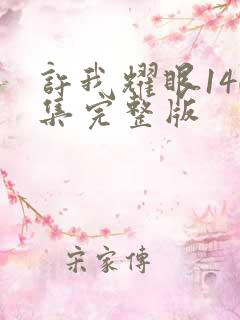 許我耀眼14
集完整版
宋家傳